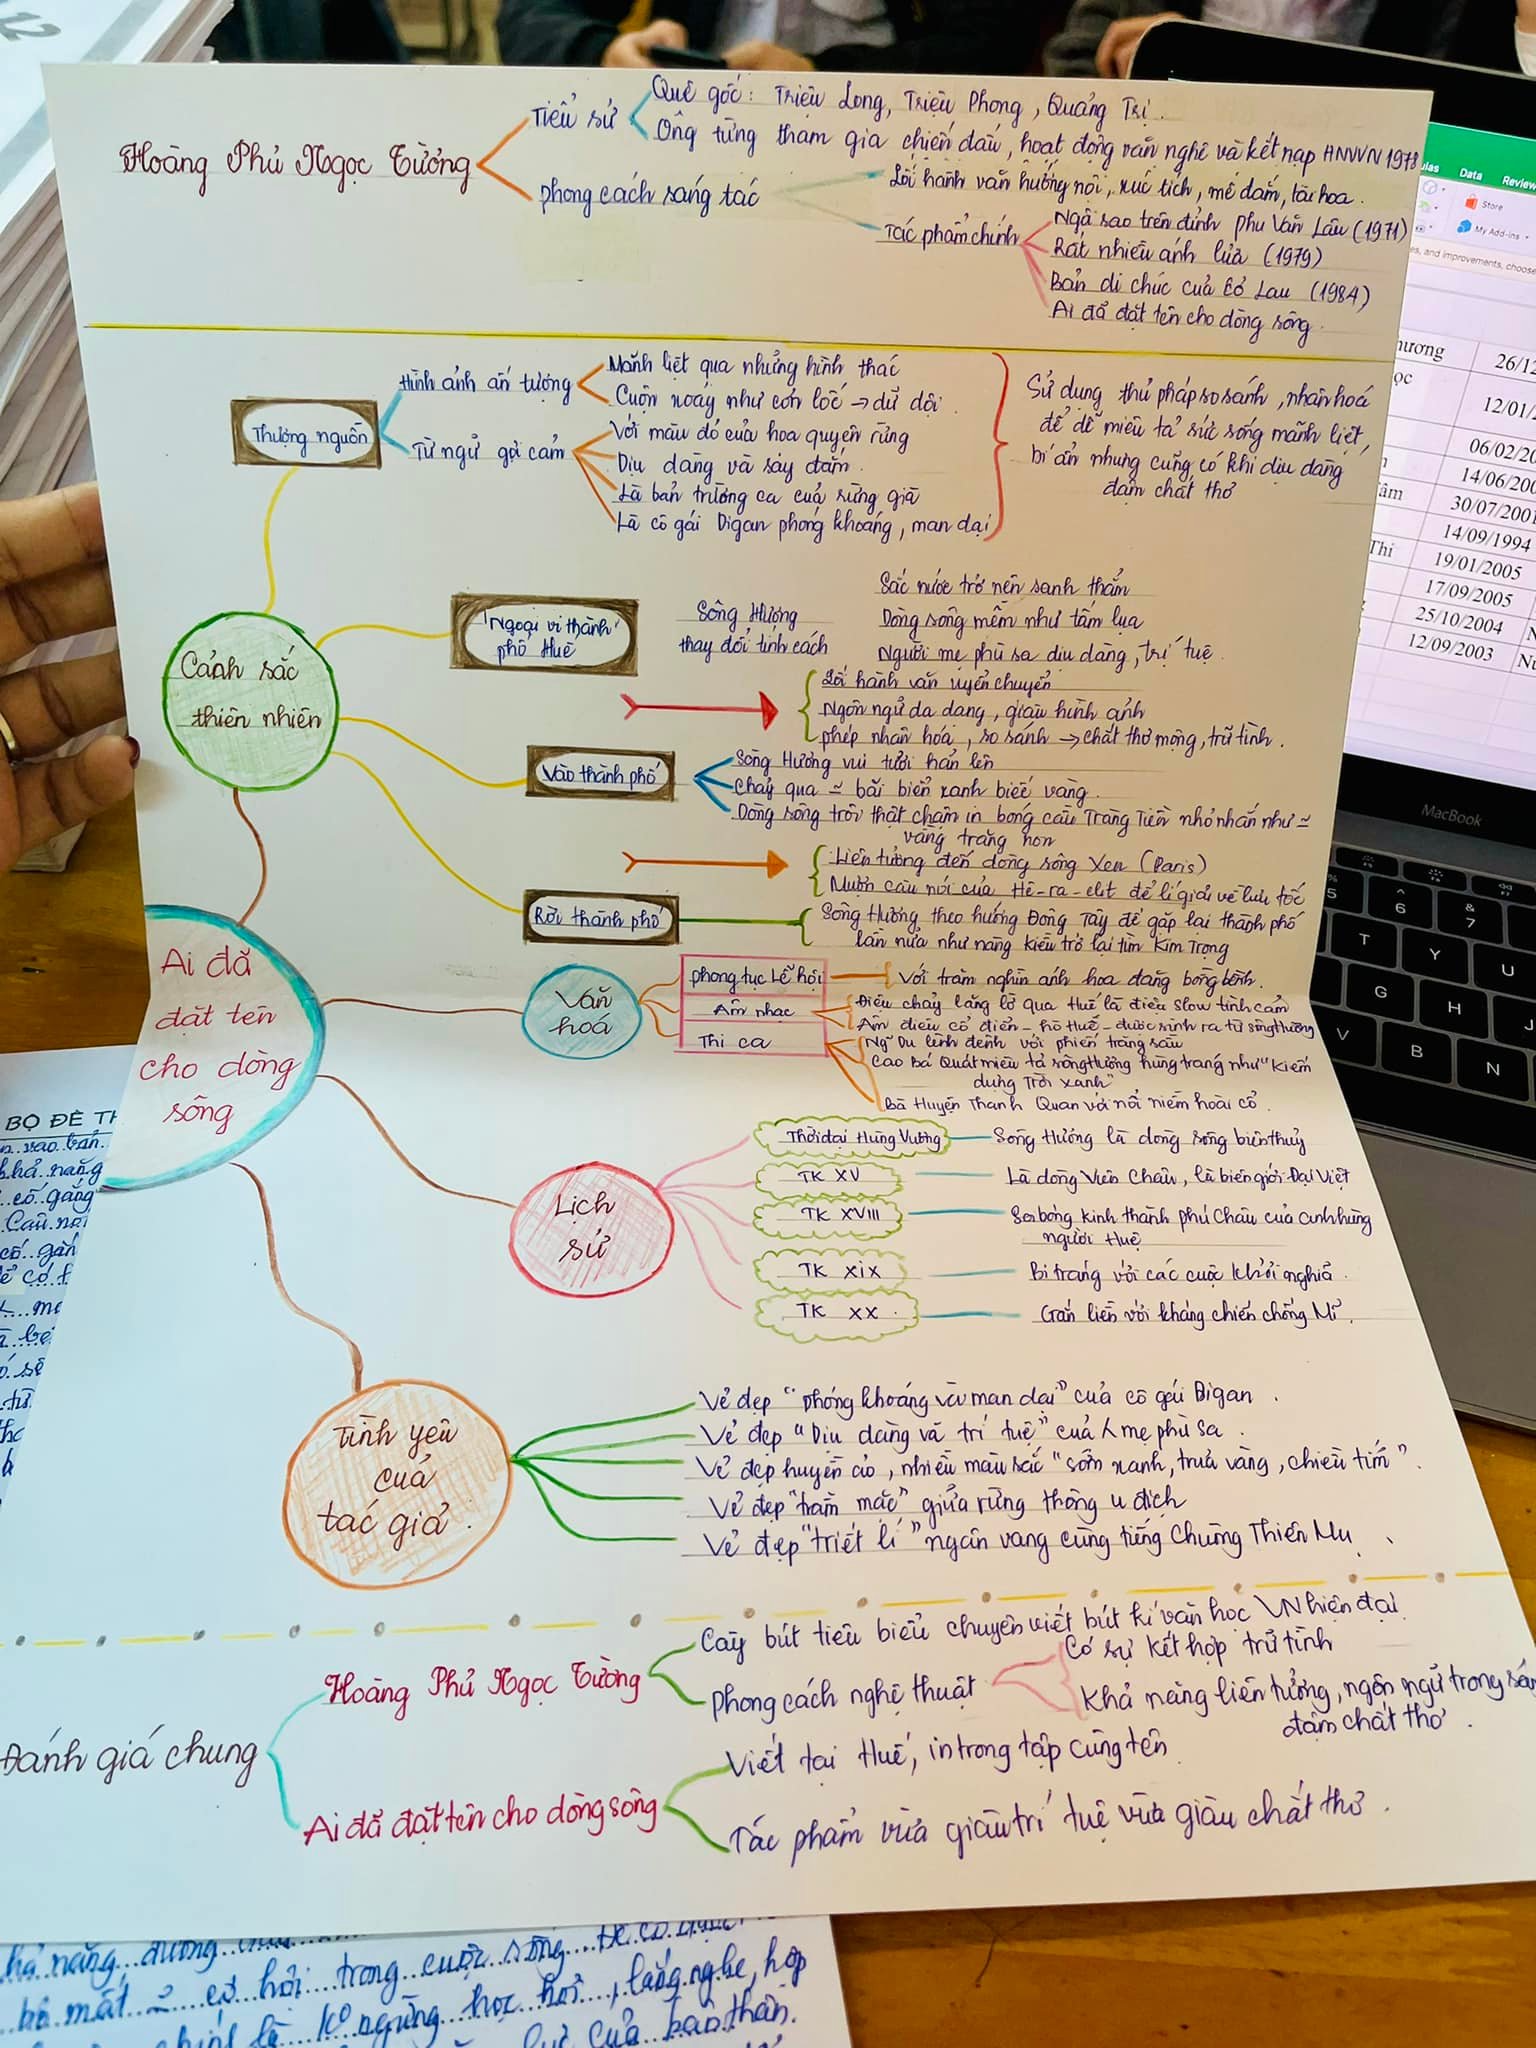 Hoàng Phủ Ngọc Tường
Tiểu sử
Quê gốc: Triệu Long, Triệu Phong, Quảng Trị.
Ông từng tham gia chiến đấu, hoạt động văn nghệ và kết nạp HNVVN 1978
phong cách sáng tác
Lối hành văn hướng nội, xúc tích, mê đắm, tài hoa.
Tác phẩm chính
Ngôi sao trên đỉnh phu Văn Lâu (1971)
Rất nhiều ánh lửa (1979)
Bản di chúc của cỏ Lau (1984)
Ai đã đặt tên cho dòng sông.
Thượng nguồn
Hình ảnh ấn tượng
Mãnh liệt qua những hình thác
Cuộn xoáy như cơn lốc → dữ dội.
Từ ngữ gợi cảm
Với màu đỏ của hoa quyên rừng
Dịu dàng và say đắm.
Là bản trường ca của rừng già
Là cô gái Digan phóng khoáng, man dại
Sử dụng thủ pháp so sánh, nhân hoá
để dễ miêu tả sức sống mãnh liệt,
bí ẩn nhưng cũng có khi dịu dàng
đậm chất thơ
Cảnh sắc
thiên nhiên
Ngoại vi thành
phố Huế
Sông Hương
thay đổi tính cách
Sắc nước trở nên xanh thẳm
Dòng sông mềm như tấm lụa
Người mẹ phù sa dịu dàng, trí tuệ.
Lối hành văn uyển chuyển
Ngôn ngữ đa dạng, giàu hình ảnh
phép nhân hóa, so sánh → chất thơ mộng, trữ tình.
Vào thành phố
Sông Hương vui tươi hẳn lên
Chảy qua = bãi biển xanh biếc vàng.
Dòng sông trôi thật chậm in bóng cầu Tràng Tiền nhỏ nhắn như =
vầng trăng non
Liên tưởng đến dòng sông Xen (Paris)
Mượn câu nói của Hê-ra-clit để lí giải về lưu tốc
Rời thành phố
Sông Hương theo hướng Đông Tây để gặp lại thành phố
lần nữa như nàng kiều trở lại tìm Kim Trọng
Ai đã
đặt tên
cho dòng
sông
Văn
hoá
phong tục Lễ hội
Với trăm nghìn ánh hoa đăng bồng bềnh.
Âm nhạc
Điệu chảy lặng lờ qua Huế là điệu slow tình cảm
Âm điệu cổ điển - hò Huế - được sinh ra từ sông Hương
Thi ca
Ng~ Du lênh đênh với phiến trăng sầu
Cao Bá Quát miêu tả sông Hương hùng tráng như "kiếm
dựng trời xanh"
Bà Huyện Thanh Quan với nỗi niềm hoài cổ.
Lịch
sử
Thời đại Hùng Vương
Sông Hương là dòng sông biên thuỳ
TK XV
Là dòng Viễn Châu, là biên giới Đại Việt
TK XVIII
Soi bóng kinh thành phú Châu của anh hùng
người Huệ
TK XIX
Bi tráng với các cuộc khởi nghĩa.
TK XX.
Gắn liền với kháng chiến chống Mĩ.
Tình yêu
của
tác giả.
Vẻ đẹp "phóng khoáng và man dại" của cô gái Digan.
Vẻ đẹp "Dịu dàng và trí tuệ" của mẹ phù sa.
Vẻ đẹp huyền ảo, nhiều màu sắc "sớm xanh, trưa vàng, chiều tím".
Vẻ đẹp "trầm mặc" giữa rừng thông u tịch
Vẻ đẹp "triết lí" ngân vang cùng tiếng Chuông Thiên Mụ.
Đánh giá chung
Hoàng Phủ Ngọc Tường
Cây bút tiêu biểu chuyên viết bút kí văn học VN hiện đại.
phong cách nghệ thuật
Có sự kết hợp trữ tình
Khả năng liên tưởng, ngôn ngữ trong sá
đậm chất thơ.
Ai đã đặt tên cho dòng sông
Viết tại Huế, in trong tập cùng tên
Tác phẩm vừa giàu trí tuệ vừa giàu chất thơ.
BỘ ĐỀ TH
12
Data
Review
Store
My Add-ins
es, and improvements, choose
hương
26/12
ọc
12/01/
06/02/20
14/06/200
âm
30/07/2001
14/09/1994
Thi
19/01/2005
17/09/2005
25/10/2004
12/09/2003
MacBook
5
^
6
&
7
T
Y
U
G
H
J
V
B
N